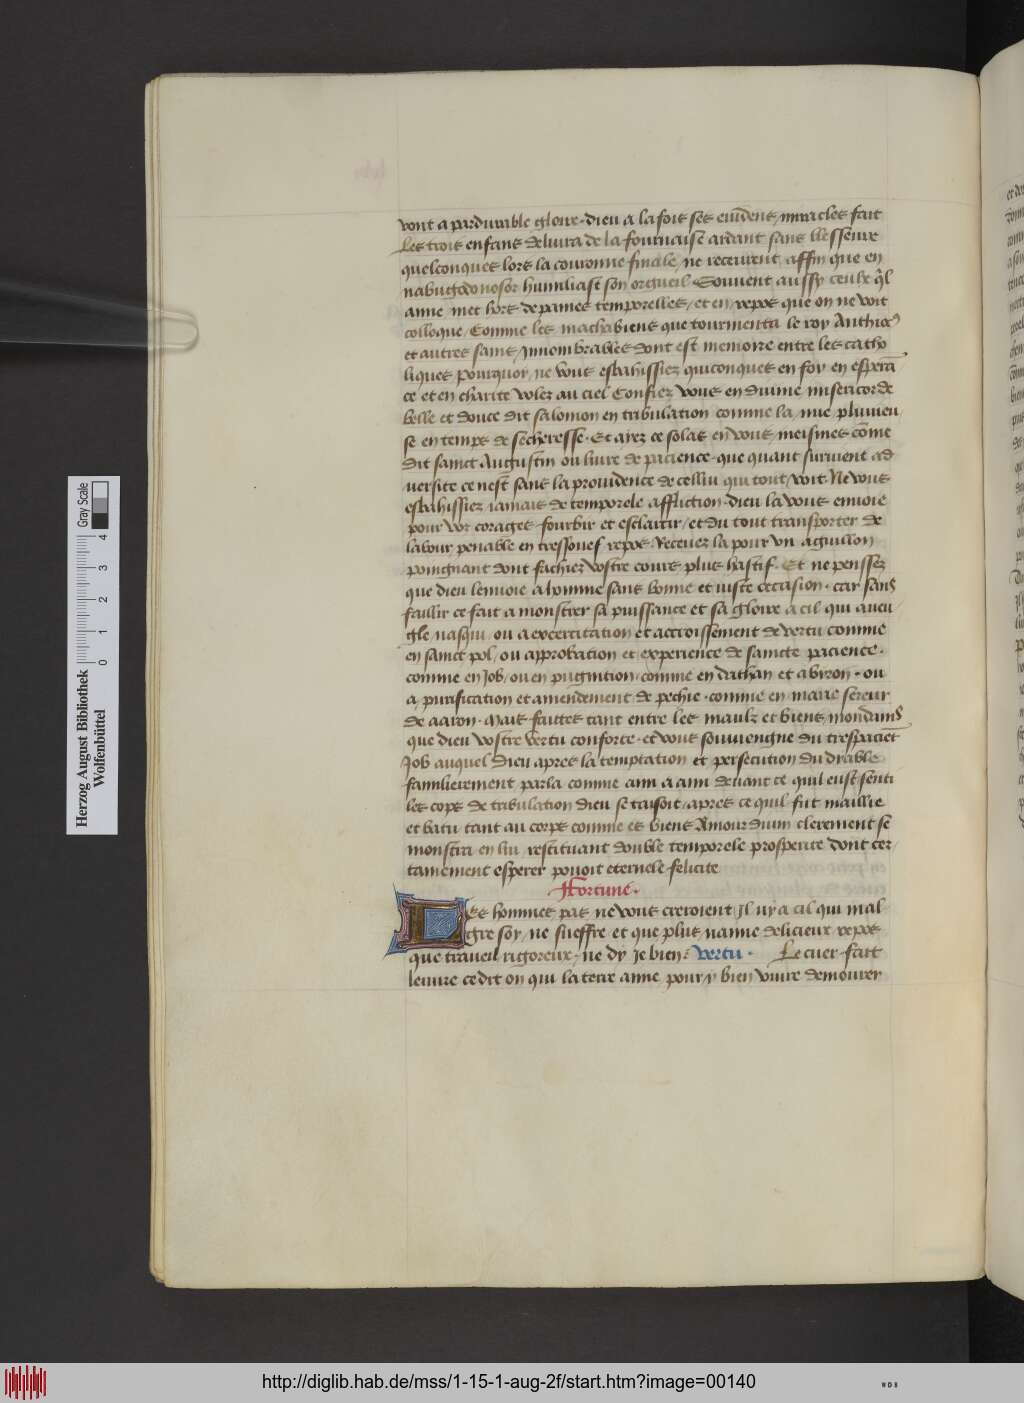 vont a pardurable gloire · dieu a la fois ses euidens miracles fait
Les trois enfans deliura de la fournaise ardant sans blesseure
quelconques lors la couronne finale ne receurent affin que en
nabugodonosor humiliast son orgueil Souuent aussy ceulx q̃l
aime met hors de paines temporelles / et en repos que on ne voit
colloque / Comme les machabiens que tourmenta le roy Anthioc9
et autres sains Innombrables dont est memoire entre les catho
liques pourquoy ne vous esbahissiez quiconques en foy en esperã
ce et en charite volez au ciel Confiez vous en diuine misericorde
belle et douce dit salomon en tribulation comme la nue pluuieu
se en temps de secheresse · Et ayez ce solas en vous meismes cõme
dit sainct Augustin ou liure de pacience · que quant suruient ad
uersite ce nest sans la prouidence de celluy qui tout voit Ne vous
esbahissiez iamais de temporele affliction · dieu la vous enuoie
pour voz corages fourbir et esclarcir / et du tout transporter de
labour penable en tresjouef repos · Receuez la pour vn aguillon
poingnant dont fachiez vostre cours plus hastif · Et ne penssez
que dieu lenuoie a homme sans bonne et iuste occasion · car sans
faillir ce fait a monstrer sa puissance et sa gloire a cil qui aueu
gle nasqui / ou a excercitation et accroissement de vertu comme
en sainct pol / ou approbation et experience de saincte pacience ·
comme en Job / ou en pugnition · comme en dathan et abyron · ou
a purification et amendement de pechie · comme en marie sereur
de aaron · Mais faittes tant entre les maulz et biens mondains
que dieu vostre vertu conforte · et vous souuiengne du trespaciẽt
Job auquel Dieu apres la temptation et persecution du dyable
familierement parla comme amy a amy deuant ce quil eust senti
les cops de tribulation dieu se taisoit / apres ce quil fut maillie
et batu tant au corps comme es biens Amour diuin clerement se
monstra en luy restituant double temporele prosperite dont cer
tainement esperer pouoit eternele felicite
Fortune ·
Les hommes pas ne vous creroient Il ny a cil qui mal
gre soy ne sueffre et que plus naime delicieux repos
que traueil rigoreux · ne dy je bien ? Vertu · Le cuer fait
leuure ce dit on qui la terre aime pour y bien viure demourer
Herzog August Bibliothek
Wolfenbüttel
0 1 2 3 4
Gray Scale
http://diglib.hab.de/mss/1-15-1-aug-2f/start.htm?image=00140